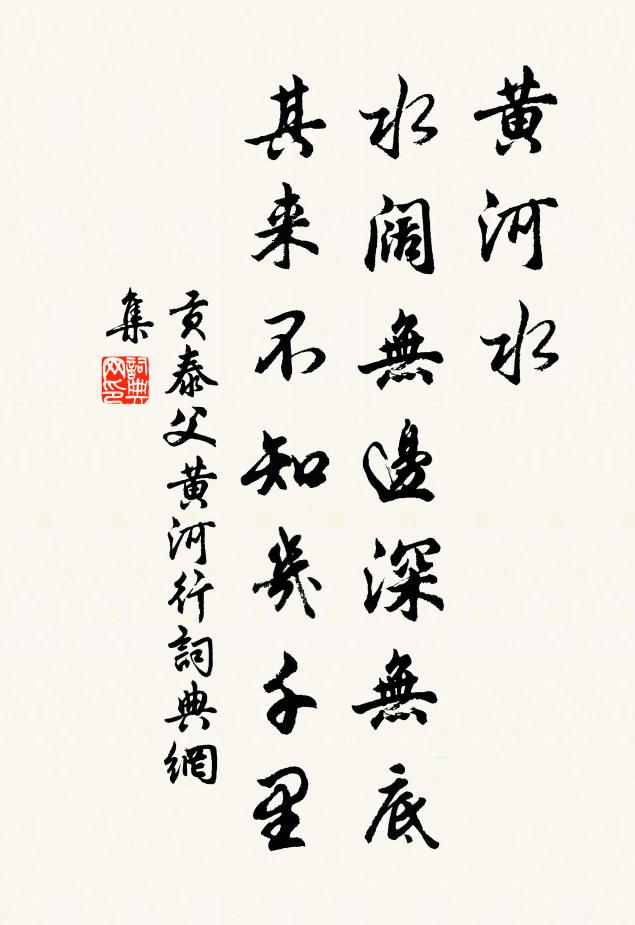 黄河水
水阔無邊深無底
其来不知幾千里
贡泰父黄河行詞典網
集
詞典
网印